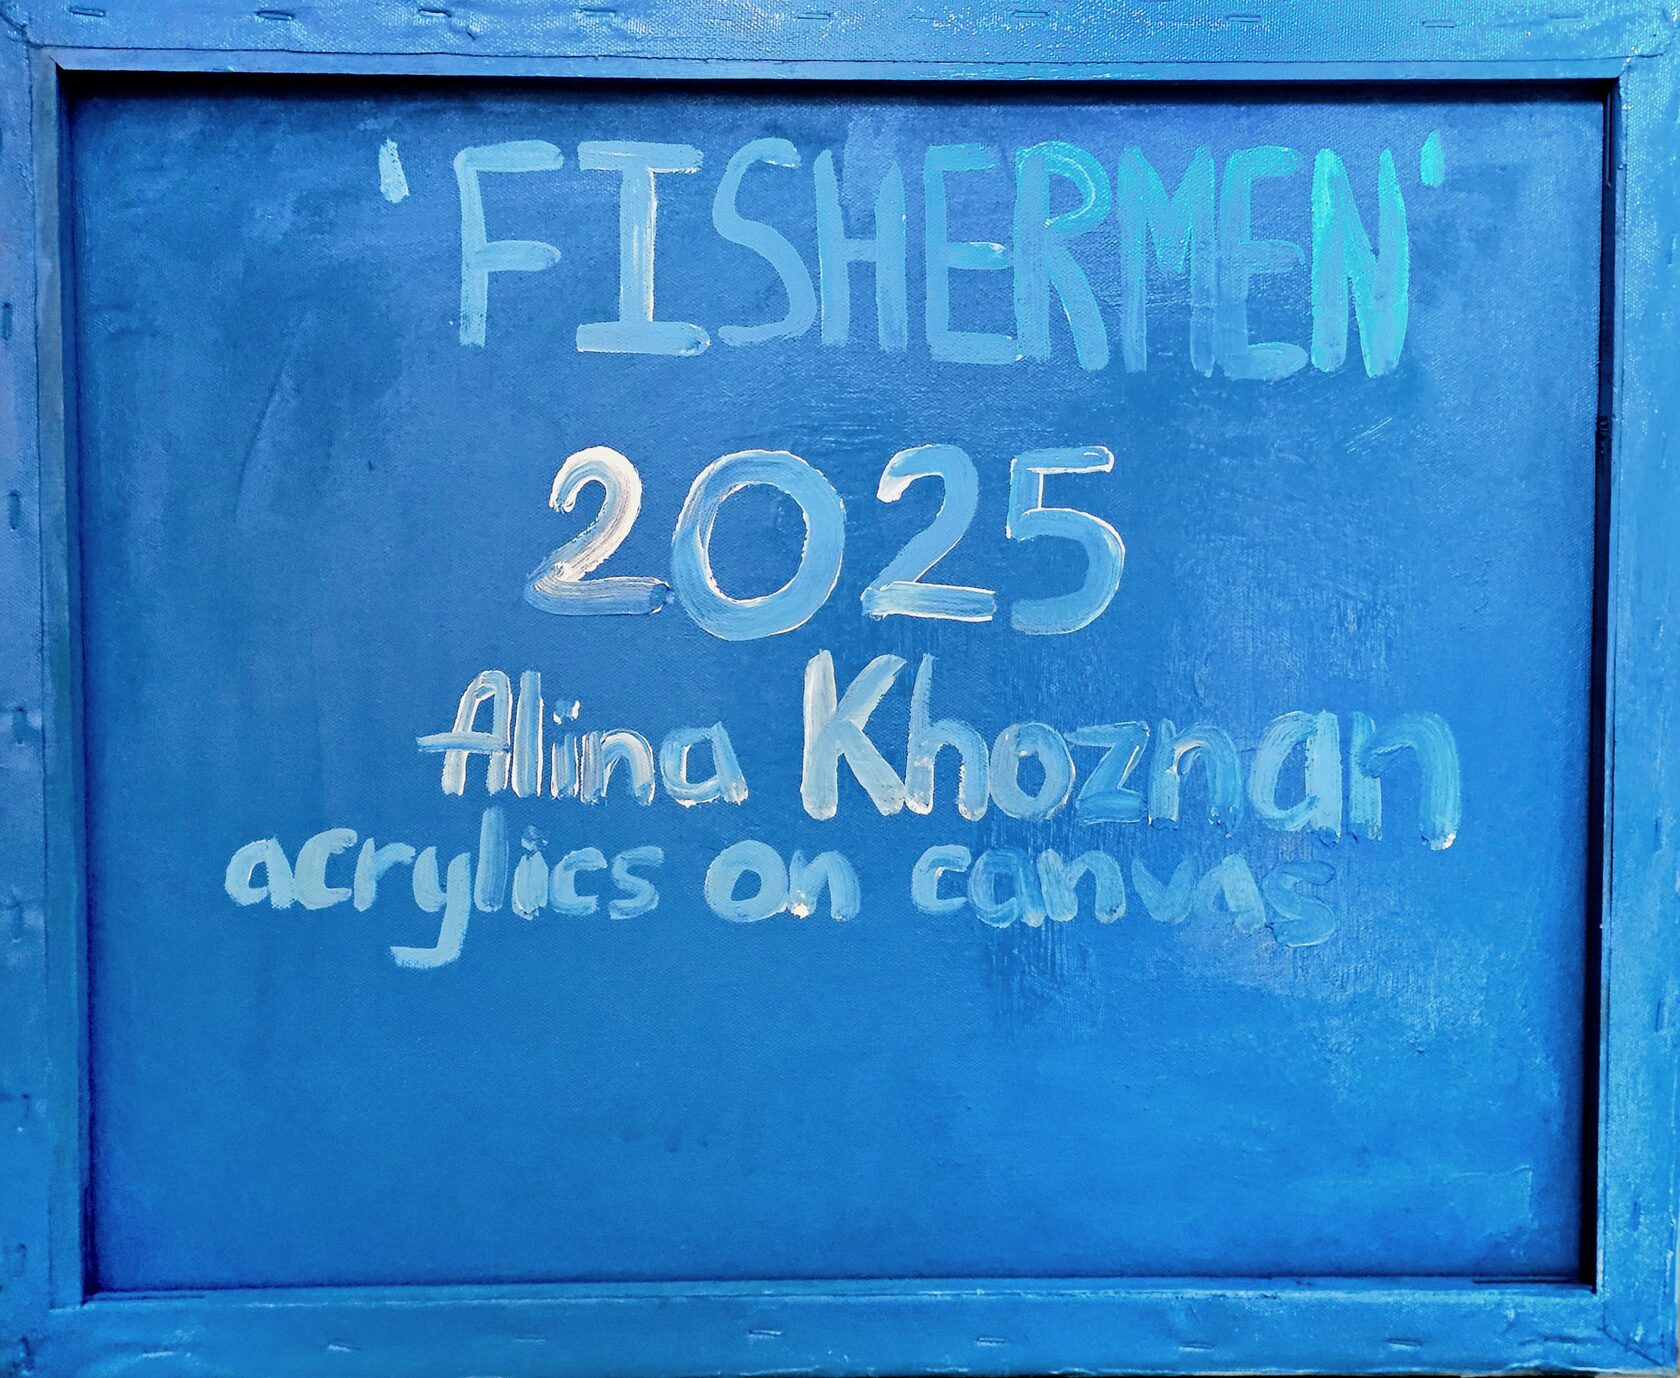 'FISHERMEN'
2025
Alina Khoznan
acrylics on canvas